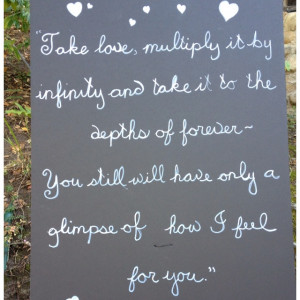 "Take love, multiply it by
infinity and take it to the
depths of forever~
You still will have only a
glimpse of how I feel
for you."